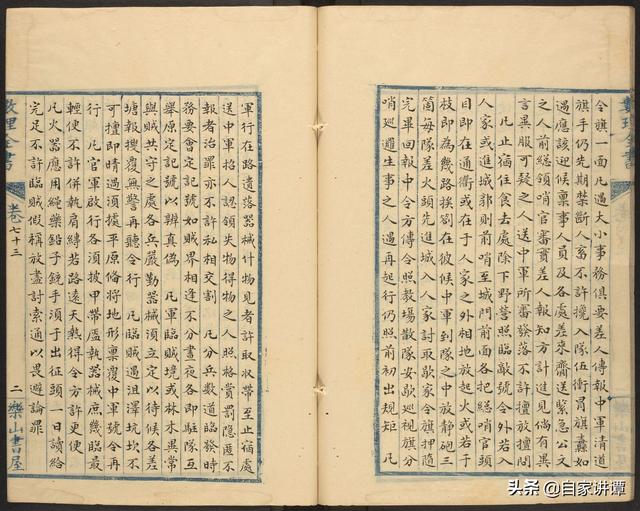 令旗一面凡遇大小事務俱要差人傳報中軍清道
旗手仍先期禁斷人畜不許攙入隊伍衝冐旗纛如
遇應該迎候稟事人員及各處差來齎送緊急公文
之人前總領哨官審實差人報知方許進見倘有異
言異服可疑之人送中軍所審發落不許擅放擅問
凡止宿住食去處除下野營照臨敵號令外若入
人家或進城郭則前哨至城門前面各把總哨官頭
目即在通衢或在于人家之外相地放起火或若于
枝即為幾路挨劄在彼候中軍到隊之中放靜砲三
箇每隊差火頭先進城入人家討取歇家令旗押隨
完畢回報中令方傳令照教場散隊安歇巡視旗分
哨巡邏生事之人遇再起行仍照前初出規矩 凡
軍行在路遺落器械什物見者許取收帶至止宿處
送中軍招人認領失物得物之人照格賞罰隱匿不
報者治罪亦不許私相交割 凡分兵數道臨發時
務要會定記號如賊界相逢不分晝夜各即駐隊互
舉原定記號以辨真偽 凡軍臨賊境或林木異常
與賊共守之處各兵嚴勤器械須立定以待候各差
塘報搜覆無警再聽令行 凡臨賊遇沮澤坑坎不
可擅即晴過須據平原脩將地形稟覆中軍號令再
行 凡官軍啟行各須披甲帶盔執器械庶幾臨最
輕便不許併執肩縛若路遠天熱得令方許更便
凡火器應用繩藥鉛子銃手須于出征頭一日請給
完足不許臨賊假稱放盡討索通以畏避論罪
數理全書 卷七十三 二 樂山書屋
头条 @自家讲谭